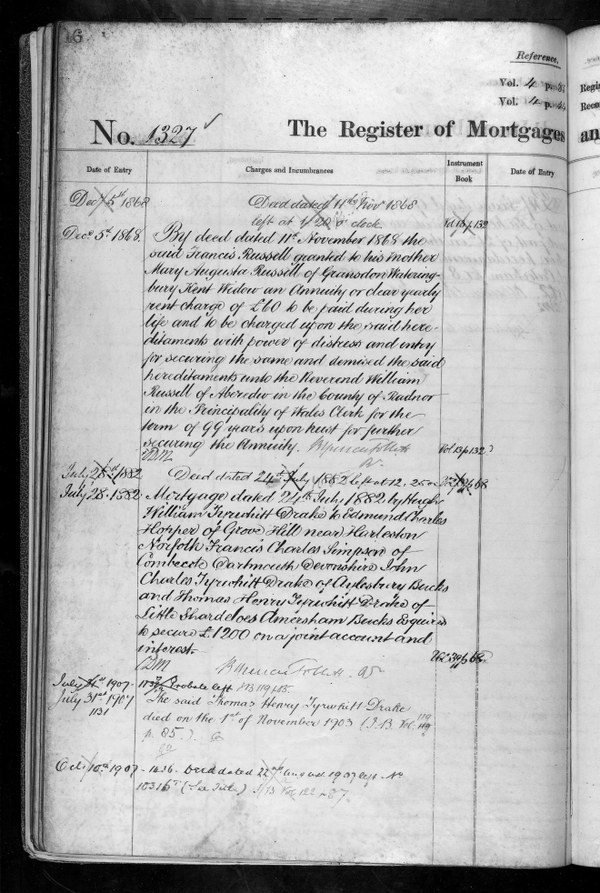 16
Reference.
Vol. 4 p. 3
Vol. 4 p.
No. 1327 The Register of Mortgages
Regi
Reco
an
Date of Entry
Charges and Incumbrances
Instrument Book
Date of Entry
Dec 5th 1868
Deed dated 11th Nov 1868
left at o'clock.
Vol 13 p 132
Decr 5th 1868.
By deed dated 11th November 1868 the
said Francis Russell granted to his mother
Mary Augusta Russell of Gransdon Watering-
bury Kent Widow an Annuity or clear yearly
rent charge of £60 to be paid during her
life and to be charged upon the said here-
ditaments with power of distress and entry
for securing the same and demised the said
hereditaments unto the Reverend William
Russell of Aberedw in the County of Radnor
in the Principality of Wales Clerk for the
term of 99 years upon trust for further
securing the Annuity.
Vol 13 p 132
DM
July 28th 1882
Deed dated 24th July 1882 left at 12.25
July 28. 1882
Mortgage dated 24th July 1882 by Hugh
William Tyrwhitt Drake to Edmund Charles
Hopper of Grove Hill near Harleston
Norfolk Francis Charles Simpson of
Combecote Dartmouth Devonshire John
Charles Tyrwhitt Drake of Aylesbury Bucks
and Thomas Henry Tyrwhitt Drake of
Little Shardeloes Amersham Bucks Esquires
to secure £1200 on a joint account and
interest.
Vol 39 p 68
DM
July 31st 1907
Probate left
July 31st 1907
1131
The said Thomas Henry Tyrwhitt Drake
died on the 1st of November 1903 (I.B. Vol 119
p. 85.)
Oct 10th 1907
1436. Deed dated 22nd August 1907 No
10316 (See Title) I/B Vol 122 p 87.